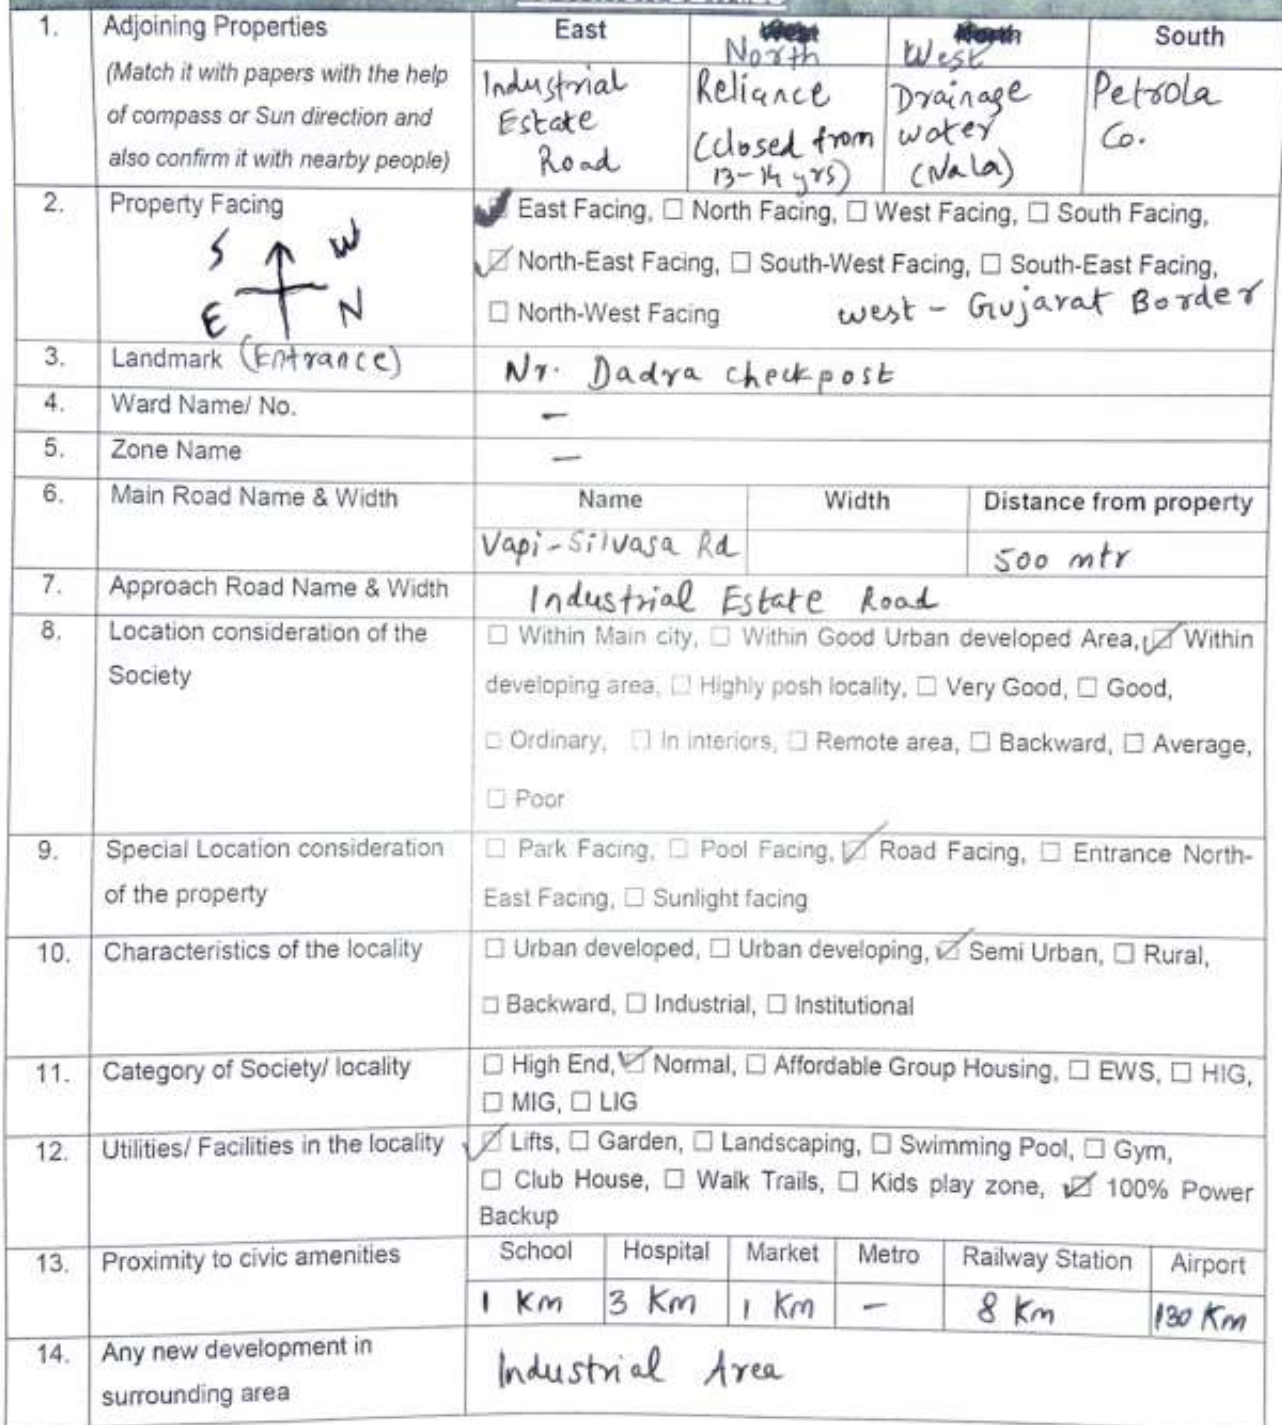 1. Adjoining Properties East West North South
North West
(Match it with papers with the help
of compass or Sun direction and
also confirm it with nearby people)
Industrial
Estate
Road
Reliance
(closed from
13-14 yrs)
Drainage
water
(Nala)
Petrola
Co.
2. Property Facing
S W
E N
☑ East Facing, ☐ North Facing, ☐ West Facing, ☐ South Facing,
☑ North-East Facing, ☐ South-West Facing, ☐ South-East Facing,
☐ North-West Facing west - Gujarat Border
3. Landmark (Entrance) Nr. Dadra checkpost
4. Ward Name/ No. -
5. Zone Name -
6. Main Road Name & Width Name Width Distance from property
Vapi-Silvasa Rd 500 mtr
7. Approach Road Name & Width Industrial Estate Road
8. Location consideration of the
Society
☐ Within Main city, ☐ Within Good Urban developed Area, ☑ Within
developing area, ☐ Highly posh locality, ☐ Very Good, ☐ Good,
☐ Ordinary, ☐ In interiors, ☐ Remote area, ☐ Backward, ☐ Average,
☐ Poor
9. Special Location consideration
of the property
☐ Park Facing, ☐ Pool Facing, ☑ Road Facing, ☐ Entrance North-
East Facing, ☐ Sunlight facing
10. Characteristics of the locality
☐ Urban developed, ☐ Urban developing, ☑ Semi Urban, ☐ Rural,
☐ Backward, ☐ Industrial, ☐ Institutional
11. Category of Society/ locality
☐ High End, ☑ Normal, ☐ Affordable Group Housing, ☐ EWS, ☐ HIG,
☐ MIG, ☐ LIG
12. Utilities/ Facilities in the locality
☑ Lifts, ☐ Garden, ☐ Landscaping, ☐ Swimming Pool, ☐ Gym,
☐ Club House, ☐ Walk Trails, ☐ Kids play zone, ☑ 100% Power
Backup
13. Proximity to civic amenities School Hospital Market Metro Railway Station Airport
1 Km 3 Km 1 Km - 8 Km 130 Km
14. Any new development in
surrounding area
Industrial Area